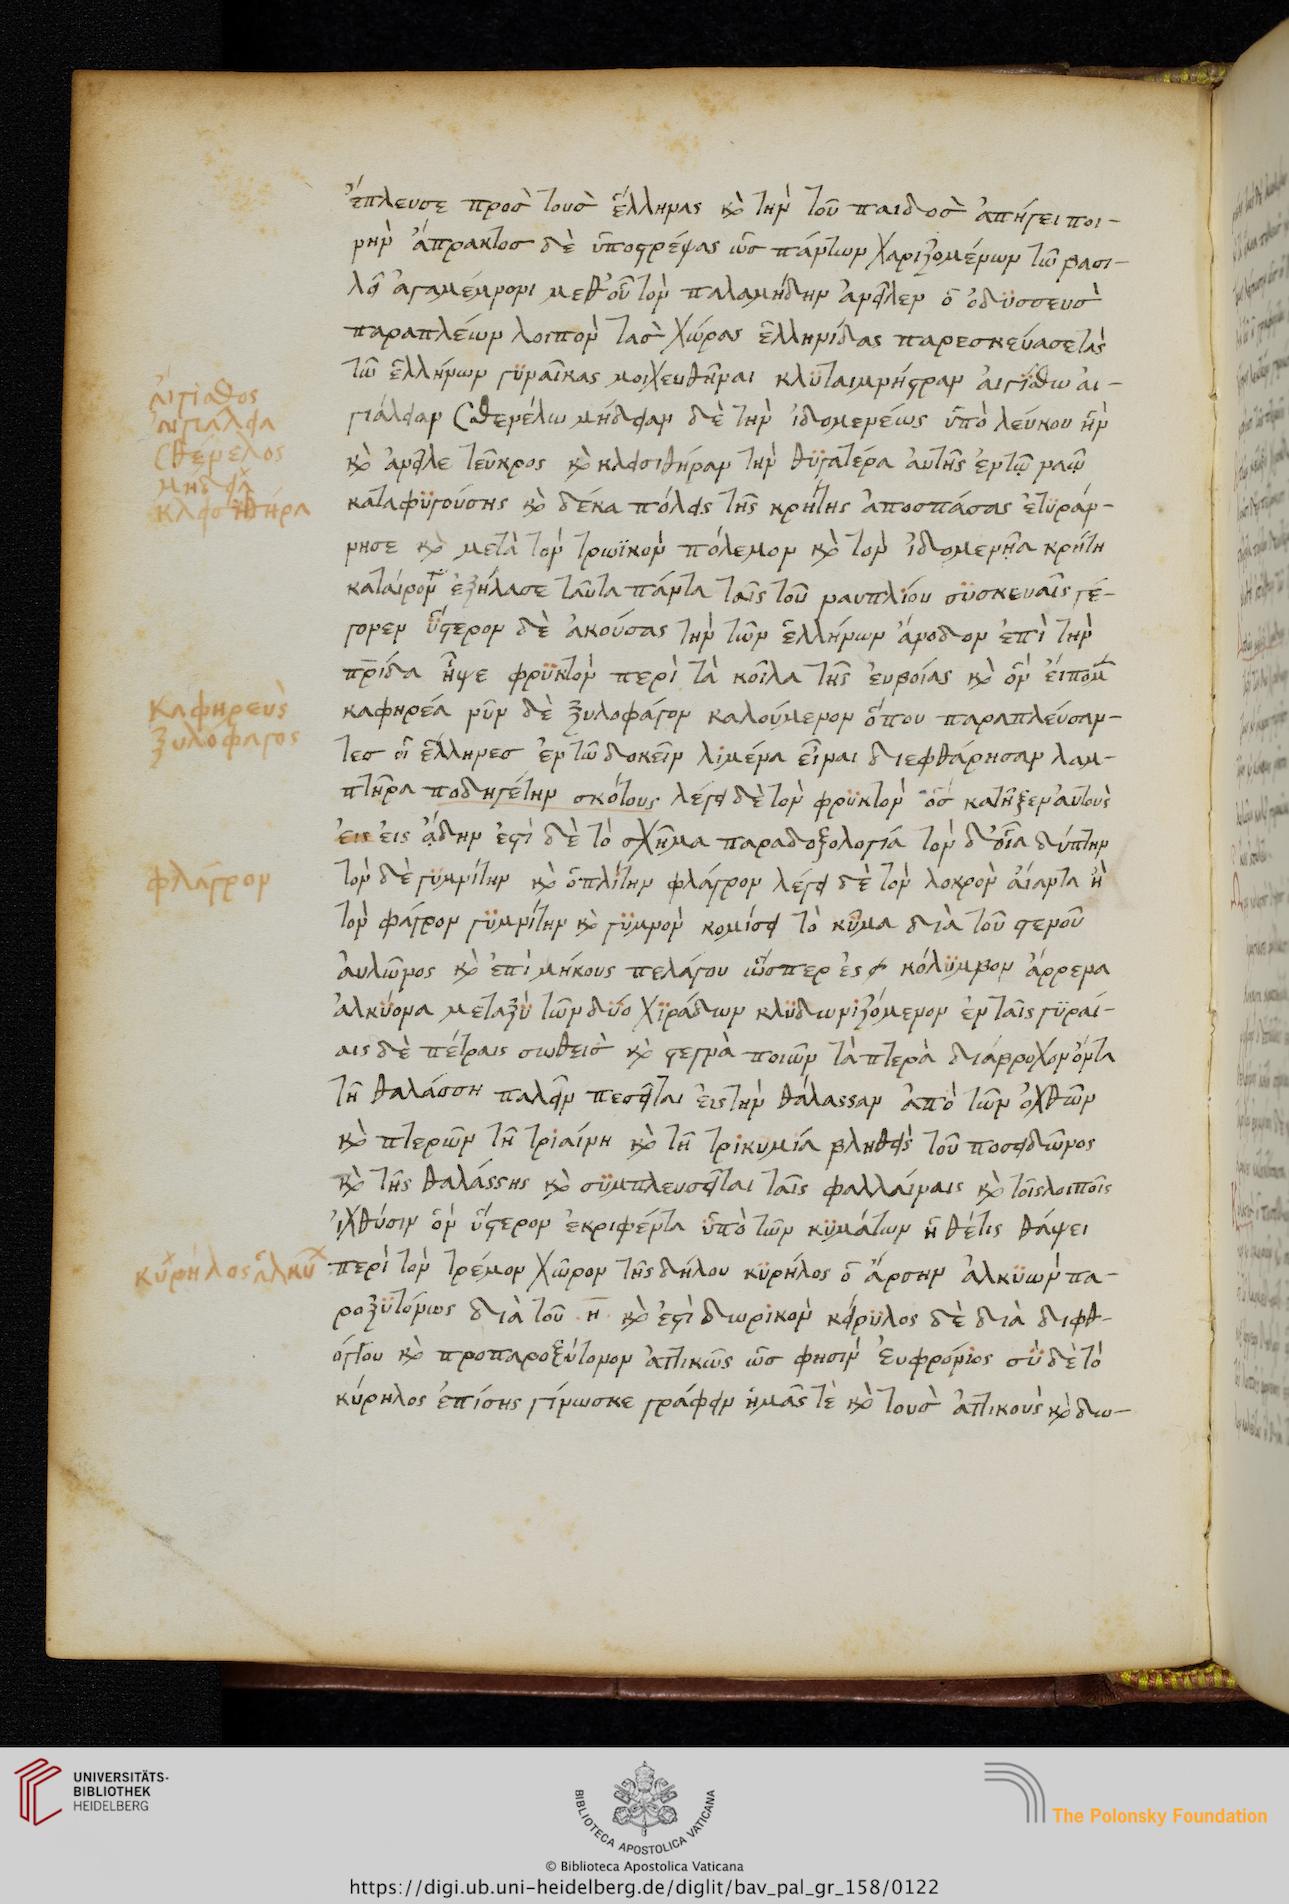 ἔπλευσε προσ τουσ ἕλληνας κ̀ τὴν τοῦ παιδοσ ἀπήτει ποι-
νὴν ἄπρακτοσ δὲ ὑποστρέψας ὡσ πάντων χαριζομένων τῶ βασι-
λεῖ ἀγαμέμνονι μεθ' οὗ τὸν παλαμήδην ἀνεῖλεν ὁ ὀδϋσσευσ
παραπλέων λοιπὸν τασ χώρας ἑλληνίδας παρεσκεύασε τὰς
τῶν ἑλλήνων γϋναῖκας μοιχευθῆναι κλϋταιμνήστραν αἰγϊάθω αἰ-
γιάλειαν σθενέλω μήδειαν δὲ τὴν ἰδομενέως ὑπὸ λεύκου ἣν
κ̀ ἀνεῖλε τεῦκρος κ̀ κλεισιθήραν τὴν θϋγατέρα αὐτῆς ἐν τῷ ναῷ
καταφϋγούσης κ̀ δέκα πόλεις τῆς κρήτης ἀποσπάσας ἐτϋράν-
νησε κ̀ μετὰ τὸν τρωϊκὸν πόλεμον κ̀ τὸν ἰδομενῆα κρήτη
καταίροντα ἐξήλασε ταῦτα πάντα ταῖς τοῦ ναυπλίου σϋσκευαῖς γέ-
γονεν ὕστερον δὲ ἀκούσας τὴν τῶν ἑλλήνων ἄνοδον ἐπὶ τὴν
πρίδα ἧψε φρϋκτὸν περὶ τὰ κοῖλα τῆς εὐβοίας κ̀ ὃν εἴπομεν
καφηρέα νῦν δὲ ξυλοφάγον καλούμενον ὅπου παραπλεύσαν-
τεσ οἱ ἕλληνεσ ἐν τῶ δοκεῖν λιμένα εἶναι διεφθάρησαν λαμ-
πτῆρα ποδηγέτην σκότους λέγει δὲ τὸν φρϋκτὸν ὅσ κατῆξεν αὐτοὺς
εἰς εἰς ᾅδην ἐστὶ δὲ τὸ σχῆμα παραδοξολογία τὸν δ' οἷα δύπτην
τὸν δὲ γϋμνίτην κ̀ ὁπλίτην φλάγρον λέγει δὲ τὸν λοκρὸν αἴαντα ἢ
τὸν φάγρον γϋμνίτην κ̀ γϋμνὸν κομίσει τὸ κῦμα διὰ τοῦ στενοῦ
αὐλῶνος κ̀ ἐπὶ μήκους πελάγου ὥσπερ ἐς κόλϋμβον ἄρρενα
ἀλκϋόνα μεταξϋ τῶν δϋο χϊράδων κλϋδωνιζόμενον ἐν ταῖς γϋραί-
αις δὲ πέτραις σωθεισ κ̀ στεγνὰ ποιῶν τὰ πτερὰ διάβροχον ὄντα
τῇ θαλάσση παλεῖν πεσεῖται εἰς τὴν θάλασσαν ἀπὸ τῶν ὀχθῶν
κ̀ πτερῶν τῆ τριαίνη κ̀ τῆ τρικυμία βληθεὶς τοῦ ποσειδῶνος
κ̀ τῆς θαλάσσης κ̀ σϋμπλευσεῖται ταῖς φαλλαίναις κ̀ τοῖς λοιποῖς
ἰχθύσιν ὃν ὕστερον ἐκριφέντα ὑπὸ τῶν κϋμάτων ἡ θέτις θάψει
περὶ τὸν τρέμον χῶρον τῆς δήλου κϋρήλος ὁ ἄρσην ἀλκϋὼν πα-
ροξϋτόνως διὰ τοῦ η κ̀ ἐστὶ δωρικὸν κείρϋλος δὲ διὰ διφθ-
όγγου κ̀ προπαροξύτονον ἀττικῶς ὡσ φησιν εὐφρόνιος σϋ δὲ τὸ
κύρηλος ἐπίσης γίνωσκε γράφειν ἡμᾶς τὲ κ̀ τουσ ἀττικοὺς κ̀ δω-
αἰγίαθος
αἰγιάλεια
σθένελος
μήδεια
κλεισιθήρα
καφηρευς
ξυλοφαγος
φλάγρον
κϋρήλος ἀλκϋ
UNIVERSITÄTS-
BIBLIOTHEK
HEIDELBERG
BIBLIOTECA APOSTOLICA VATICANA
The Polonsky Foundation
© Biblioteca Apostolica Vaticana
https://digi.ub.uni-heidelberg.de/diglit/bav_pal_gr_158/0122